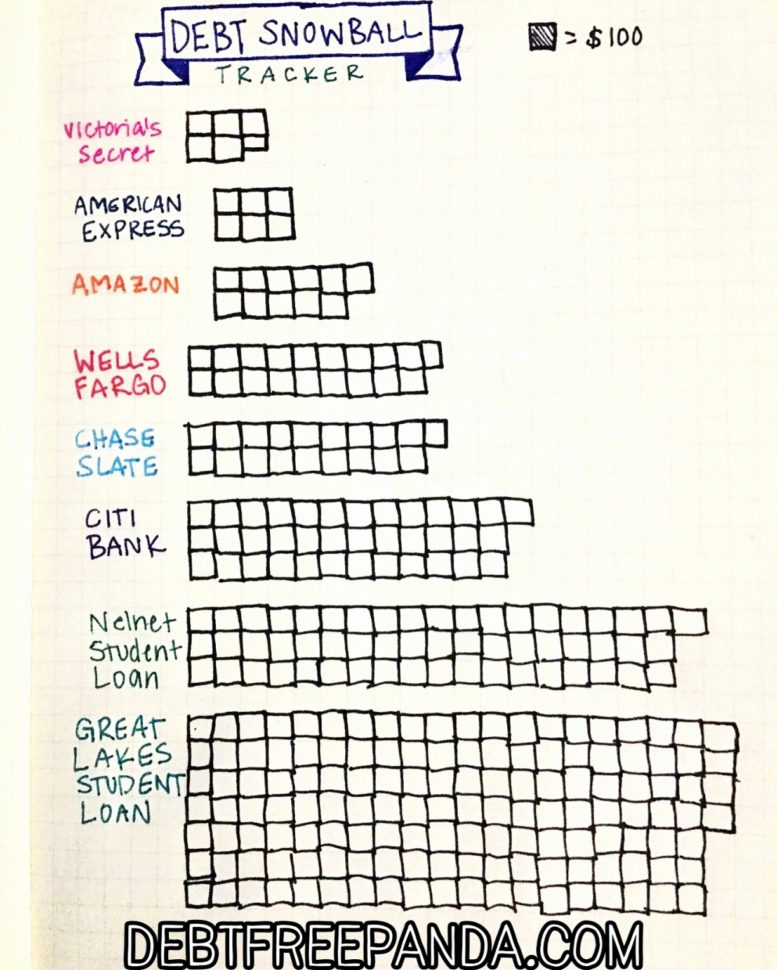 DEBT SNOWBALL
TRACKER
= $100
Victoria's
Secret
AMERICAN
EXPRESS
AMAZON
WELLS
FARGO
CHASE
SLATE
CITI
BANK
Nelnet
Student
Loan
GREAT
LAKES
STUDENT
LOAN
DEBTFREEPANDA.COM